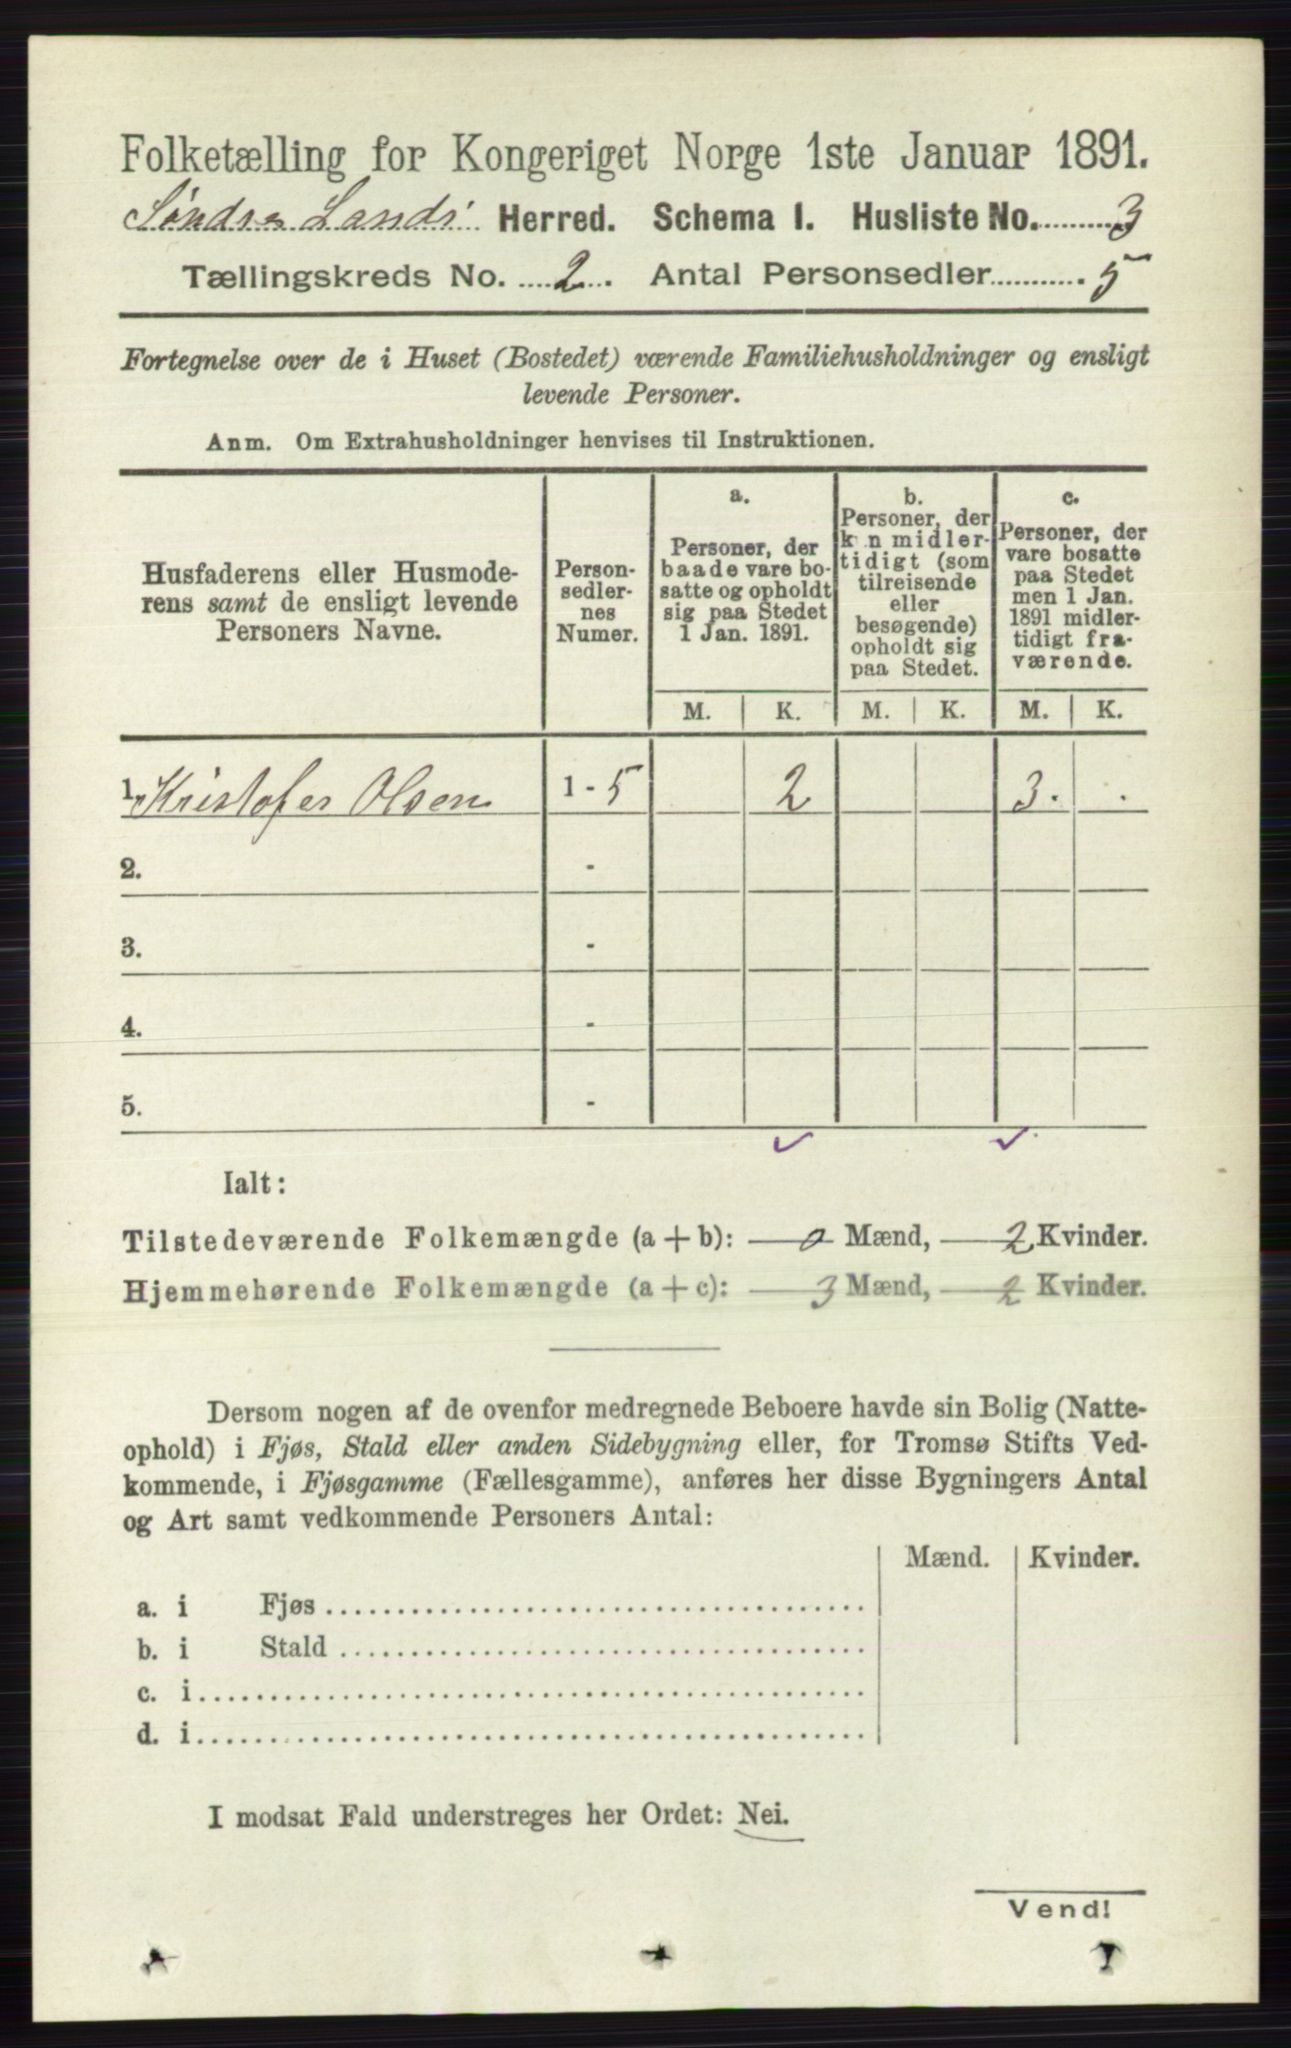 Folketælling for Kongeriget Norge 1ste Januar 1891.
Søndre Lands Herred. Schema I. Husliste No. 3
Tællingskreds No. 2. Antal Personsedler 5
Fortegnelse over de i Huset (Bostedet) værende Familiehusholdninger og ensligt
levende Personer.
Anm. Om Extrahusholdninger henvises til Instruktionen.
Husfaderens eller Husmode-
rens samt de ensligt levende
Personers Navne.
Person-
sedler-
nes
Numer.
a.
Personer, der
baade vare bo-
satte og opholdt
sig paa Stedet
1 Jan. 1891.
b.
Personer, der
k n midler-
tidigt (som
tilreisende
eller
besøgende)
opholdt sig
paa Stedet.
c.
Personer, der
vare bosatte
paa Stedet
men 1 Jan.
1891 midler-
tidigt fra-
værende.
M. K. M. K. M. K.
1. Kristofer Olsen 1 - 5 2 3. .
2. -
3. -
4. -
5. -
Ialt:
Tilstedeværende Folkemængde (a + b): 0 Mænd, 2 Kvinder.
Hjemmehørende Folkemængde (a + c): 3 Mænd, 2 Kvinder.
Dersom nogen af de ovenfor medregnede Beboere havde sin Bolig (Natte-
ophold) i Fjøs, Stald eller anden Sidebygning eller, for Tromsø Stifts Ved-
kommende, i Fjøsgamme (Fællesgamme), anføres her disse Bygningers Antal
og Art samt vedkommende Personers Antal:
Mænd. Kvinder.
a. i Fjøs
b. i Stald
c. i
d. i
I modsat Fald understreges her Ordet: Nei.
Vend!